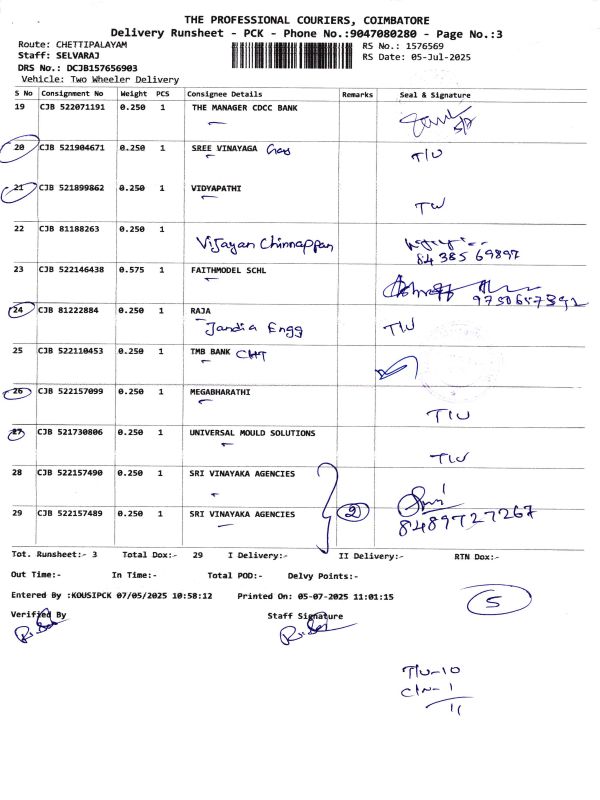 THE PROFESSIONAL COURIERS, COIMBATORE
Delivery Runsheet - PCK - Phone No.:9047080280 - Page No.:3
Route: CHETTIPALAYAM
RS No.: 1576569
Staff: SELVARAJ
RS Date: 05-Jul-2025
DRS No.: DCJB157656903
Vehicle: Two Wheeler Delivery
S No Consignment No Weight PCS Consignee Details Remarks Seal & Signature
19 CJB 522071191 0.250 1 THE MANAGER CDCC BANK
20 CJB 521904671 0.250 1 SREE VINAYAGA T/W
21 CJB 521899862 0.250 1 VIDYAPATHI TW
22 CJB 81188263 0.250 1
Vijayan Chinnappan
84385 69897
23 CJB 522146438 0.575 1 FAITHMODEL SCHL
9750657392
24 CJB 81222884 0.250 1 RAJA
Jandia Engg T/W
25 CJB 522110453 0.250 1 TMB BANK CHT
26 CJB 522157099 0.250 1 MEGABHARATHI
T/W
27 CJB 521730806 0.250 1 UNIVERSAL MOULD SOLUTIONS
T/W
28 CJB 522157490 0.250 1 SRI VINAYAKA AGENCIES
29 CJB 522157489 0.250 1 SRI VINAYAKA AGENCIES 2 8489727267
Tot. Runsheet:- 3 Total Dox:- 29 I Delivery:- II Delivery:- RTN Dox:-
Out Time:- In Time:- Total POD:- Delvy Points:-
Entered By :KOUSIPCK 07/05/2025 10:58:12 Printed On: 05-07-2025 11:01:15
5
Verified By Staff Signature
T/W-10
C/N-1
11